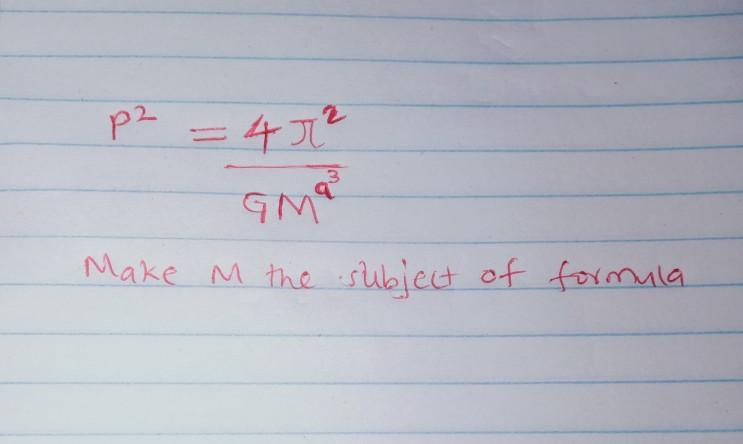 P² = 4π²
GMᵃ³
Make M the subject of formula